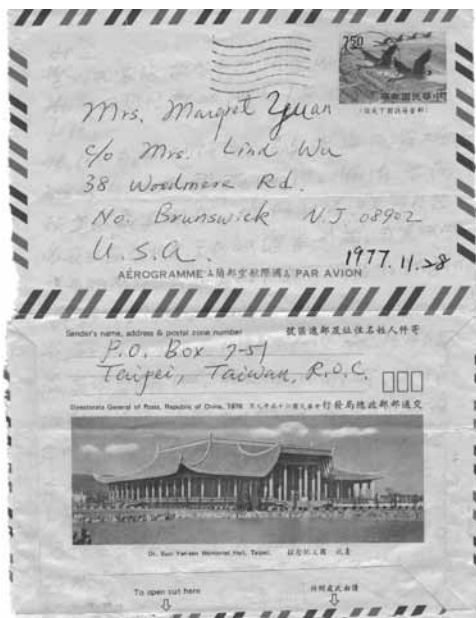 7.50
中華民國郵票
Mrs. Margret Yuan
c/o Mrs. Lind Wu
38 Woodmere Rd.
No. Brunswick N.J 08902
U.S.A.
1977.11.28
AÉROGRAMME 國際航空郵簡 PAR AVION
Sender's name, address & postal zone number 寄件人姓名住址及郵遞區號
P.O. Box 7-51
Taipei, Taiwan, R.O.C.
Directorate General of Posts, Republic of China, 1976 交通部郵政總局發行
Dr. Sun Yat-sen Memorial Hall, Taipei. 臺北 國父紀念館
To open cut here 請由此處剪開